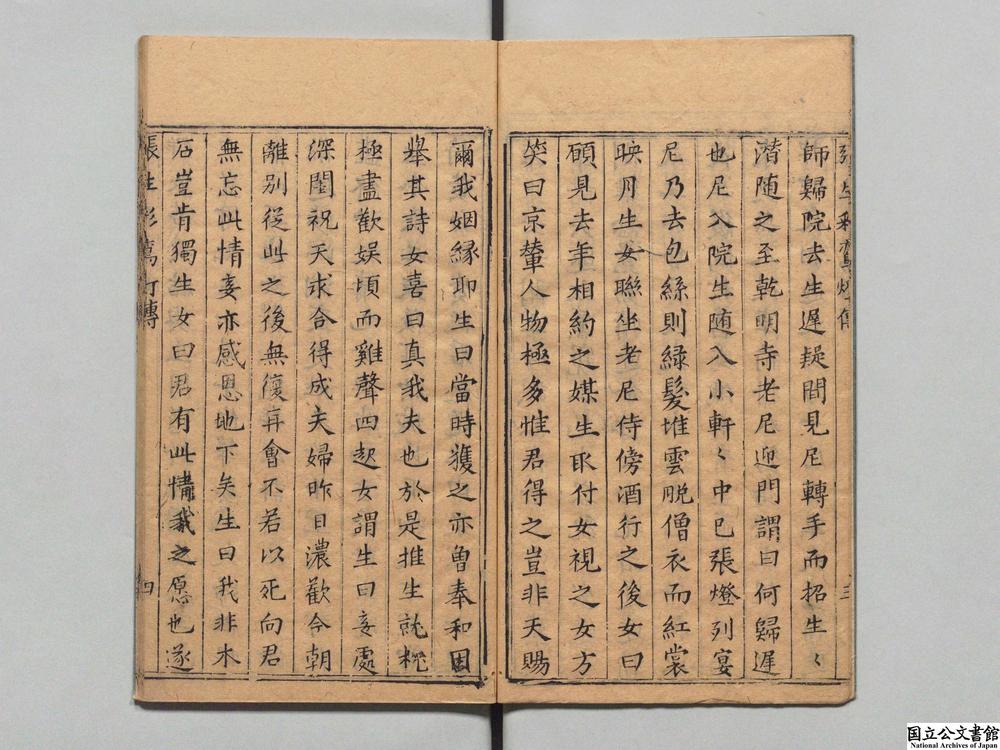 張生彩鸞燈傳
三
師歸院去生遲疑間見尼轉手而招生〻
潛随之至乾明寺老尼迎門謂曰何歸遲
也尼入院生随入小軒〻中已張燈列宴
尼乃去包絲則緑髮堆雲脱僧衣而紅裳
映月生女聯坐老尼侍傍酒行之後女曰
願見去年相約之媒生取付女視之女方
笑曰京輦人物極多惟君得之豈非天賜
爾我姻縁耶生曰當時獲之亦曽奉和因
舉其詩女喜曰真我夫也於是推生就枕
極盡歡娱頃而雞聲四起女謂生曰妾處
深閨祝天求合得成夫婦昨日濃歡今朝
離别從此之後無復再會不若以死向君
無忘此情妾亦感恩地下矣生曰我非木
石豈肯獨生女曰君有此情我之愿也遂
張生彩鸞灯傳
四
国立公文書館
National Archives of Japan